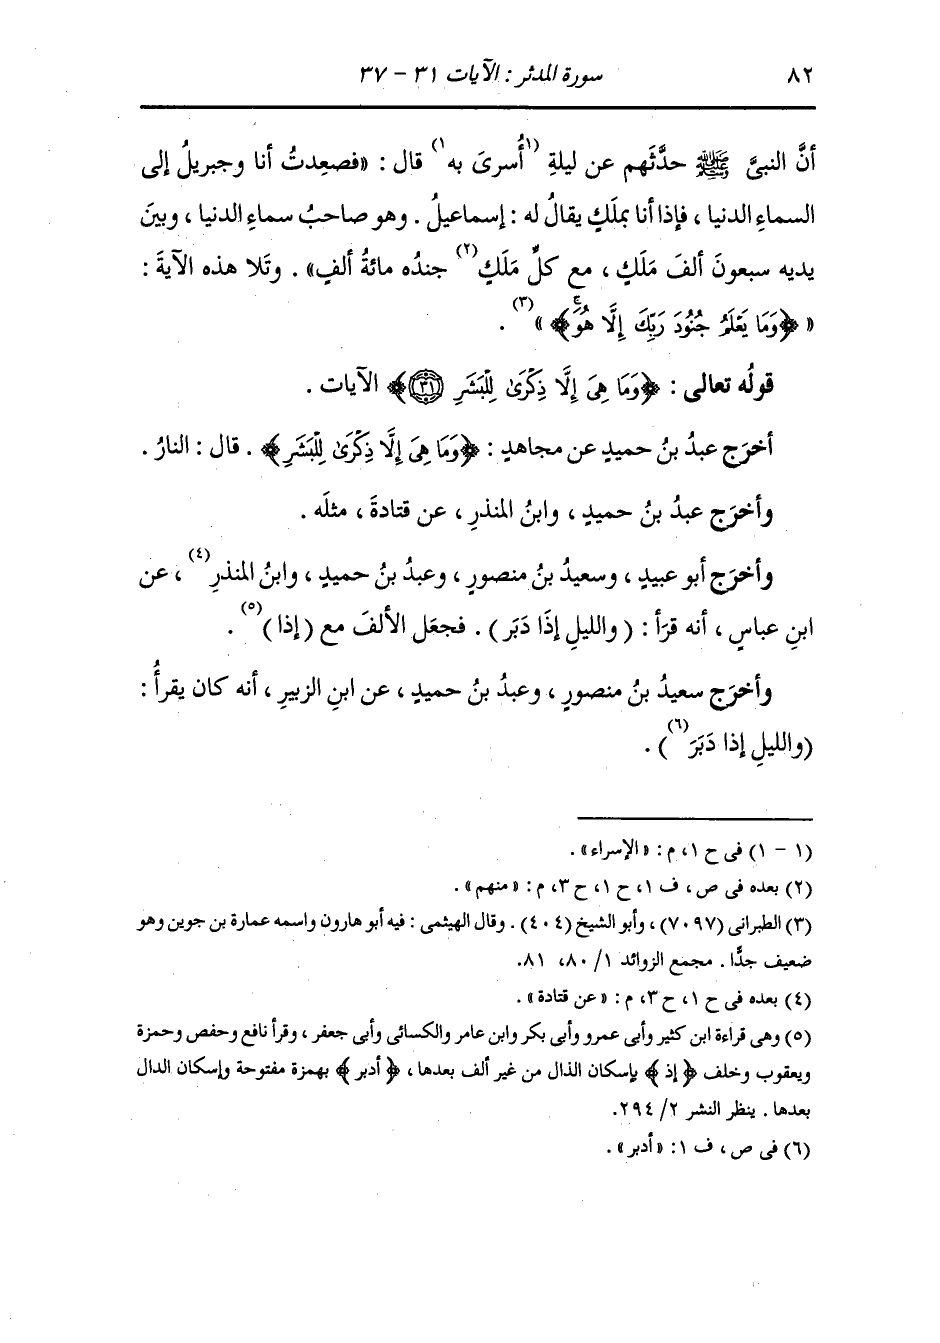 ٨٢ سورة المدثر : الآيات ٣١ - ٣٧
أنَّ النبىَّ ﷺ حدَّثَهم عن ليلةِ (١أُسرىَ به١) قال : «فصعِدتُ أنا وجبريلُ إلى
السماءِ الدنيا ، فإذا أنا بملَكٍ يقالُ له : إسماعيلُ . وهو صاحبُ سماءِ الدنيا ، وبينَ
يديه سبعونَ ألفَ مَلَكٍ ، مع كلِّ مَلَكٍ(٢) جندُه مائةُ ألفٍ» . وتَلا هذه الآيةَ :
« ﴿وَمَا يَعْلَمُ جُنُودَ رَبِّكَ إِلَّا هُوَۚ﴾ »(٣) .
قولُه تعالى : ﴿وَمَا هِىَ إِلَّا ذِكْرَىٰ لِلْبَشَرِ ٣١﴾ الآيات .
أخرَج عبدُ بنُ حميدٍ عن مجاهدٍ : ﴿وَمَا هِىَ إِلَّا ذِكْرَىٰ لِلْبَشَرِ﴾ . قال : النارُ .
وأخرَج عبدُ بنُ حميدٍ ، وابنُ المنذرِ ، عن قتادةَ ، مثلَه .
وأخرَج أبو عبيدٍ ، وسعيدُ بنُ منصورٍ ، وعبدُ بنُ حميدٍ ، وابنُ المنذرِ(٤) ، عن
ابنِ عباسٍ ، أنه قرَأ : ( والليلِ إذَا دَبَر ) . فجعَل الألفَ مع ( إذا )(٥) .
وأخرَج سعيدُ بنُ منصورٍ ، وعبدُ بنُ حميدٍ ، عن ابنِ الزبيرِ ، أنه كان يقرأُ :
(والليلِ إذا دَبَرَ(٦)) .
(١ - ١) فى ح ١، م : «الإسراء» .
(٢) بعده فى ص ، ف ١، ح ١، ح ٣، م : «منهم» .
(٣) الطبرانى (٧٠٩٧) ، وأبو الشيخ (٤٠٤) . وقال الهيثمى : فيه أبو هارون واسمه عمارة بن جوين وهو
ضعيف جدًّا . مجمع الزوائد ١/ ٨٠، ٨١.
(٤) بعده فى ح ١، ح ٣، م : «عن قتادة» .
(٥) وهى قراءة ابن كثير وأبى عمرو وأبى بكر وابن عامر والكسائى وأبى جعفر ، وقرأ نافع وحفص وحمزة
ويعقوب وخلف ﴿إذ﴾ بإسكان الذال من غير ألف بعدها ، ﴿أدبر﴾ بهمزة مفتوحة وإسكان الدال
بعدها . ينظر النشر ٢/ ٢٩٤.
(٦) فى ص ، ف ١: «أدبر» .